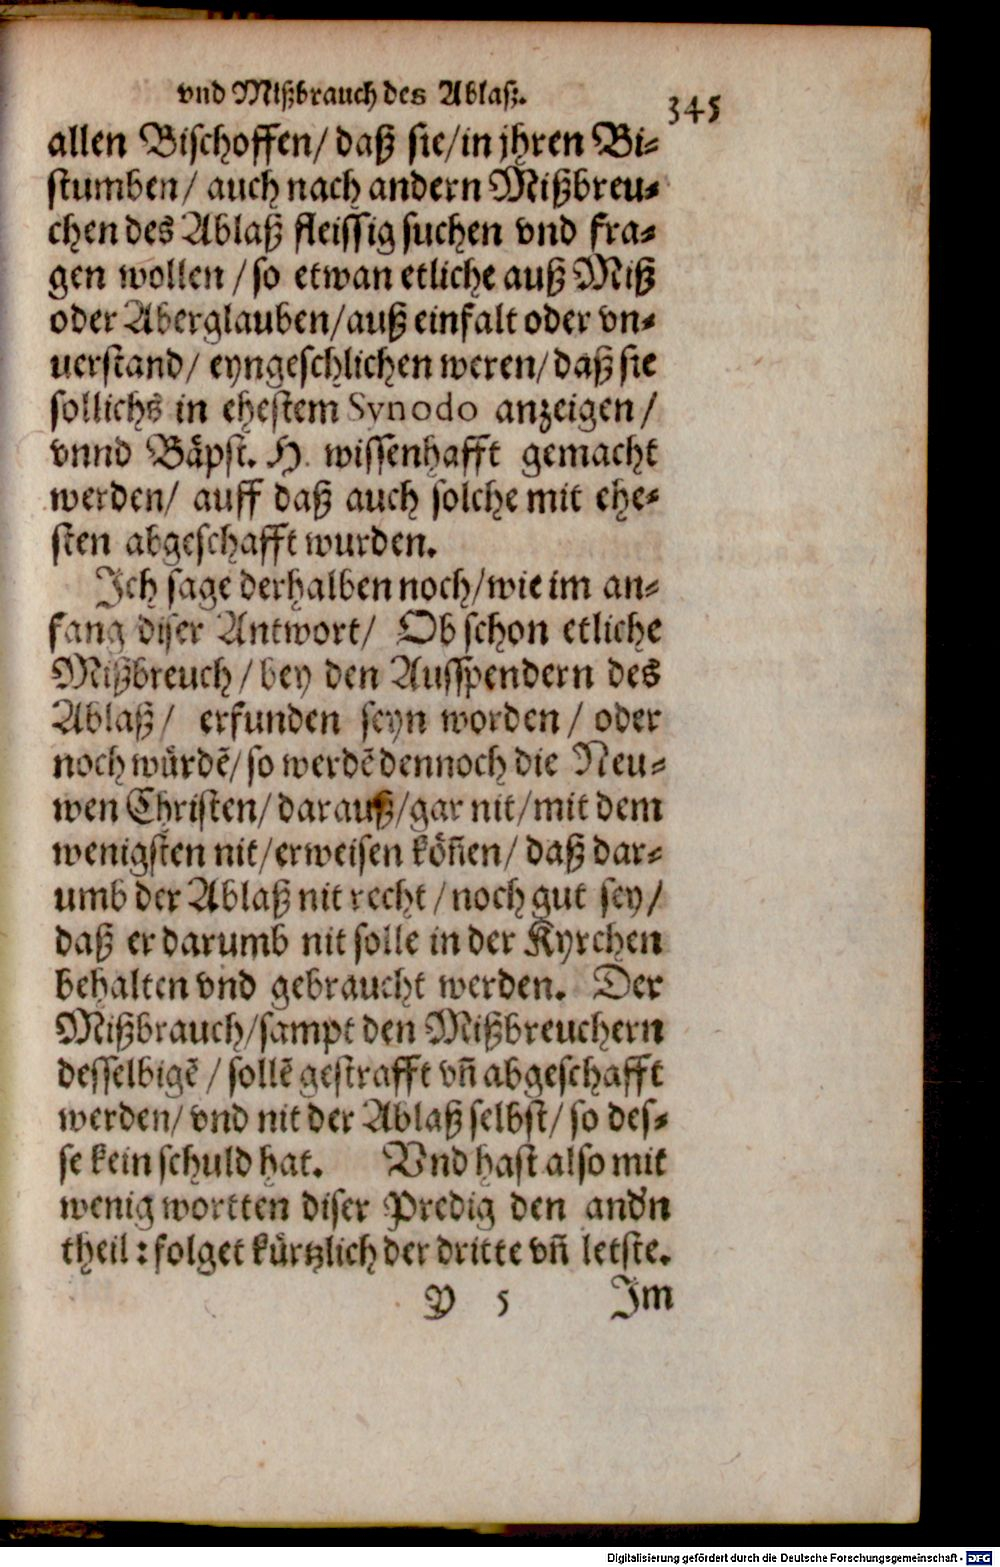 vnd Mißbrauch des Ablaß.
345
allen Bischoffen/ daß sie/in jhren Bi⸗
stumben/ auch nach andern Mißbreu⸗
chen des Ablaß fleissig suchen vnd fra⸗
gen wollen /so etwan etliche auß Miß
oder Aberglauben/auß einfalt oder vn⸗
uerstand/ eyngeschlichen weren/daß sie
sollichs in ehestem Synodo anzeigen/
vnnd Bäpst. H. wissenhafft gemacht
werden/ auff daß auch solche mit ehe⸗
sten abgeschafft wurden.
Ich sage derhalben noch/wie im an⸗
fang diser Antwort/ Ob schon etliche
Mißbreuch/bey den Ausspendern des
Ablaß/ erfunden seyn worden/ oder
noch würdē/so werdē dennoch die Neu⸗
wen Christen/darauß/gar nit/mit dem
wenigsten nit/erweisen köñen/ daß dar⸗
umb der Ablaß nit recht/noch gut sey/
daß er darumb nit solle in der Kyrchen
behalten vnd gebraucht werden. Der
Mißbrauch/sampt den Mißbreuchern
desselbigē/ sollē gestrafft vñ abgeschafft
werden/ vnd nit der Ablaß selbst/ so des⸗
se kein schuld hat. Vnd hast also mit
wenig wortten diser Predig den andn
theil: folget kürtzlich der dritte vñ letste.
Y 5 Im
Digitalisierung gefördert durch die Deutsche Forschungsgemeinschaft - DFG